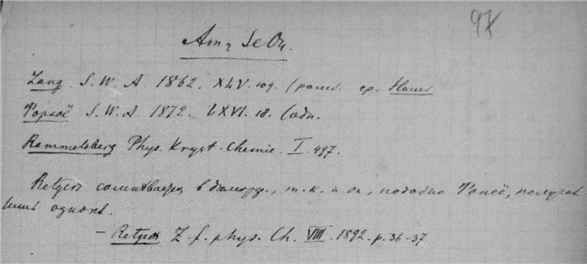 97
Am₂ SeO₄.
Lang S. W. A. 1862. XLV. 109. ( ср. Hauer
Topsoë S. W. A 1872. LXVI. 18. (одн.
Rammelsberg Phys. Kryst. Chemie. I. 497.
Retgers в , т. к. и он, подобно Topsoë, получал
лишь одноκл.
— Retgers Z. f. phys. Ch. VIII. 1892. p. 36-37